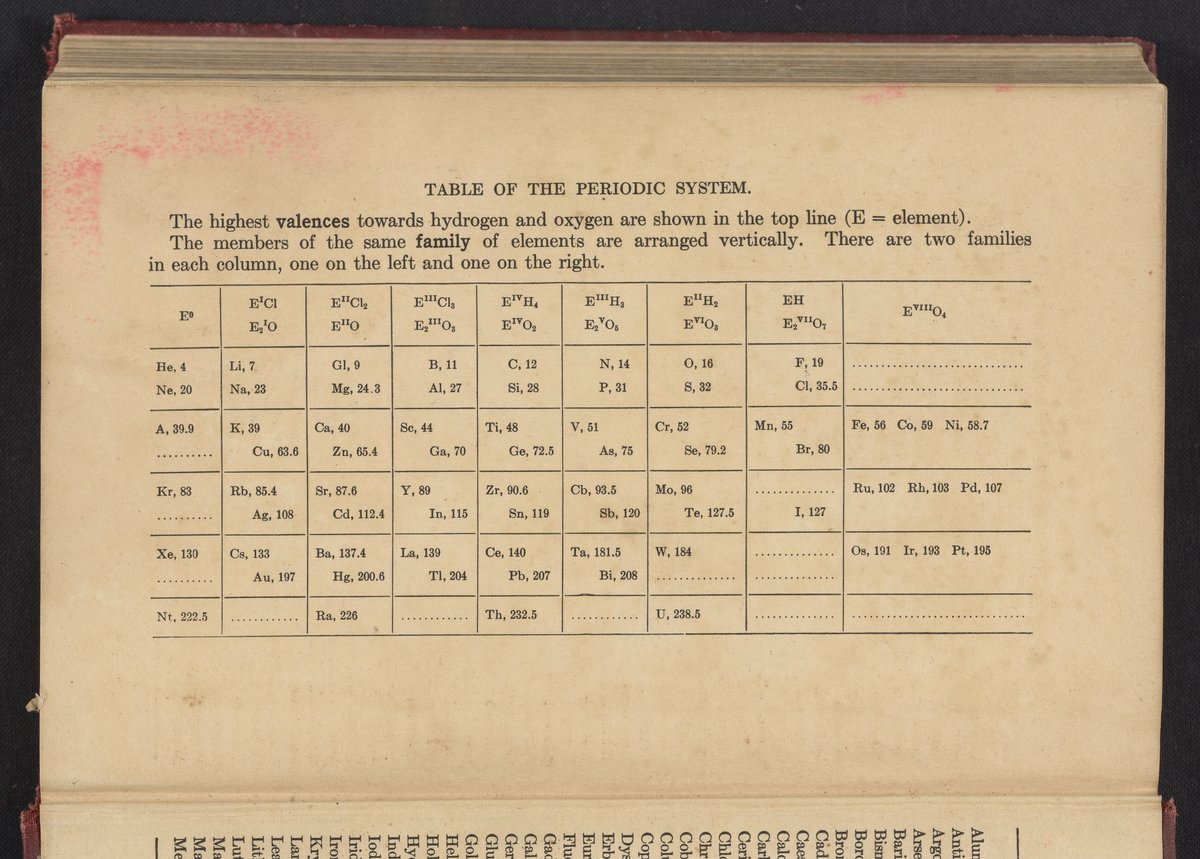 TABLE OF THE PERIODIC SYSTEM.
The highest valences towards hydrogen and oxygen are shown in the top line (E = element).
The members of the same family of elements are arranged vertically. There are two families
in each column, one on the left and one on the right.
E⁰ EᴵCl EᴵᴵCl₂ EᴵᴵᴵCl₃ EᴵⱽH₄ EᴵᴵᴵH₃ EᴵᴵH₂ EH EⱽᴵᴵᴵO₄
E₂ᴵO EᴵᴵO E₂ᴵᴵᴵO₃ EᴵⱽO₂ E₂ⱽO₅ EⱽᴵO₃ E₂ⱽᴵᴵO₇
He, 4 Li, 7 Gl, 9 B, 11 C, 12 N, 14 O, 16 F, 19 ..............................
Ne, 20 Na, 23 Mg, 24.3 Al, 27 Si, 28 P, 31 S, 32 Cl, 35.5 ..............................
A, 39.9 K, 39 Ca, 40 Sc, 44 Ti, 48 V, 51 Cr, 52 Mn, 55 Fe, 56 Co, 59 Ni, 58.7
.......... Cu, 63.6 Zn, 65.4 Ga, 70 Ge, 72.5 As, 75 Se, 79.2 Br, 80
Kr, 83 Rb, 85.4 Sr, 87.6 Y, 89 Zr, 90.6 Cb, 93.5 Mo, 96 .............. Ru, 102 Rh, 103 Pd, 107
.......... Ag, 108 Cd, 112.4 In, 115 Sn, 119 Sb, 120 Te, 127.5 I, 127
Xe, 130 Cs, 133 Ba, 137.4 La, 139 Ce, 140 Ta, 181.5 W, 184 .............. Os, 191 Ir, 193 Pt, 195
.......... Au, 197 Hg, 200.6 Tl, 204 Pb, 207 Bi, 208 .............. ..............
Nt, 222.5 ............ Ra, 226 ............ Th, 232.5 ............ U, 238.5 .............. ..............................
Alum
Anti
Argo
Arse
Bari
Bism
Boro
Bron
Cad
Caes
Calc
Carb
Ceri
Chlo
Chr
Coba
Colu
Copp
Dys
Erb
Eur
Fluo
Gad
Gall
Ger
Glu
Gol
Hel
Hol
Hy
Ind
Iod
Irid
Iron
Kry
Lan
Lea
Lit
Lut
Ma
Ma
Me